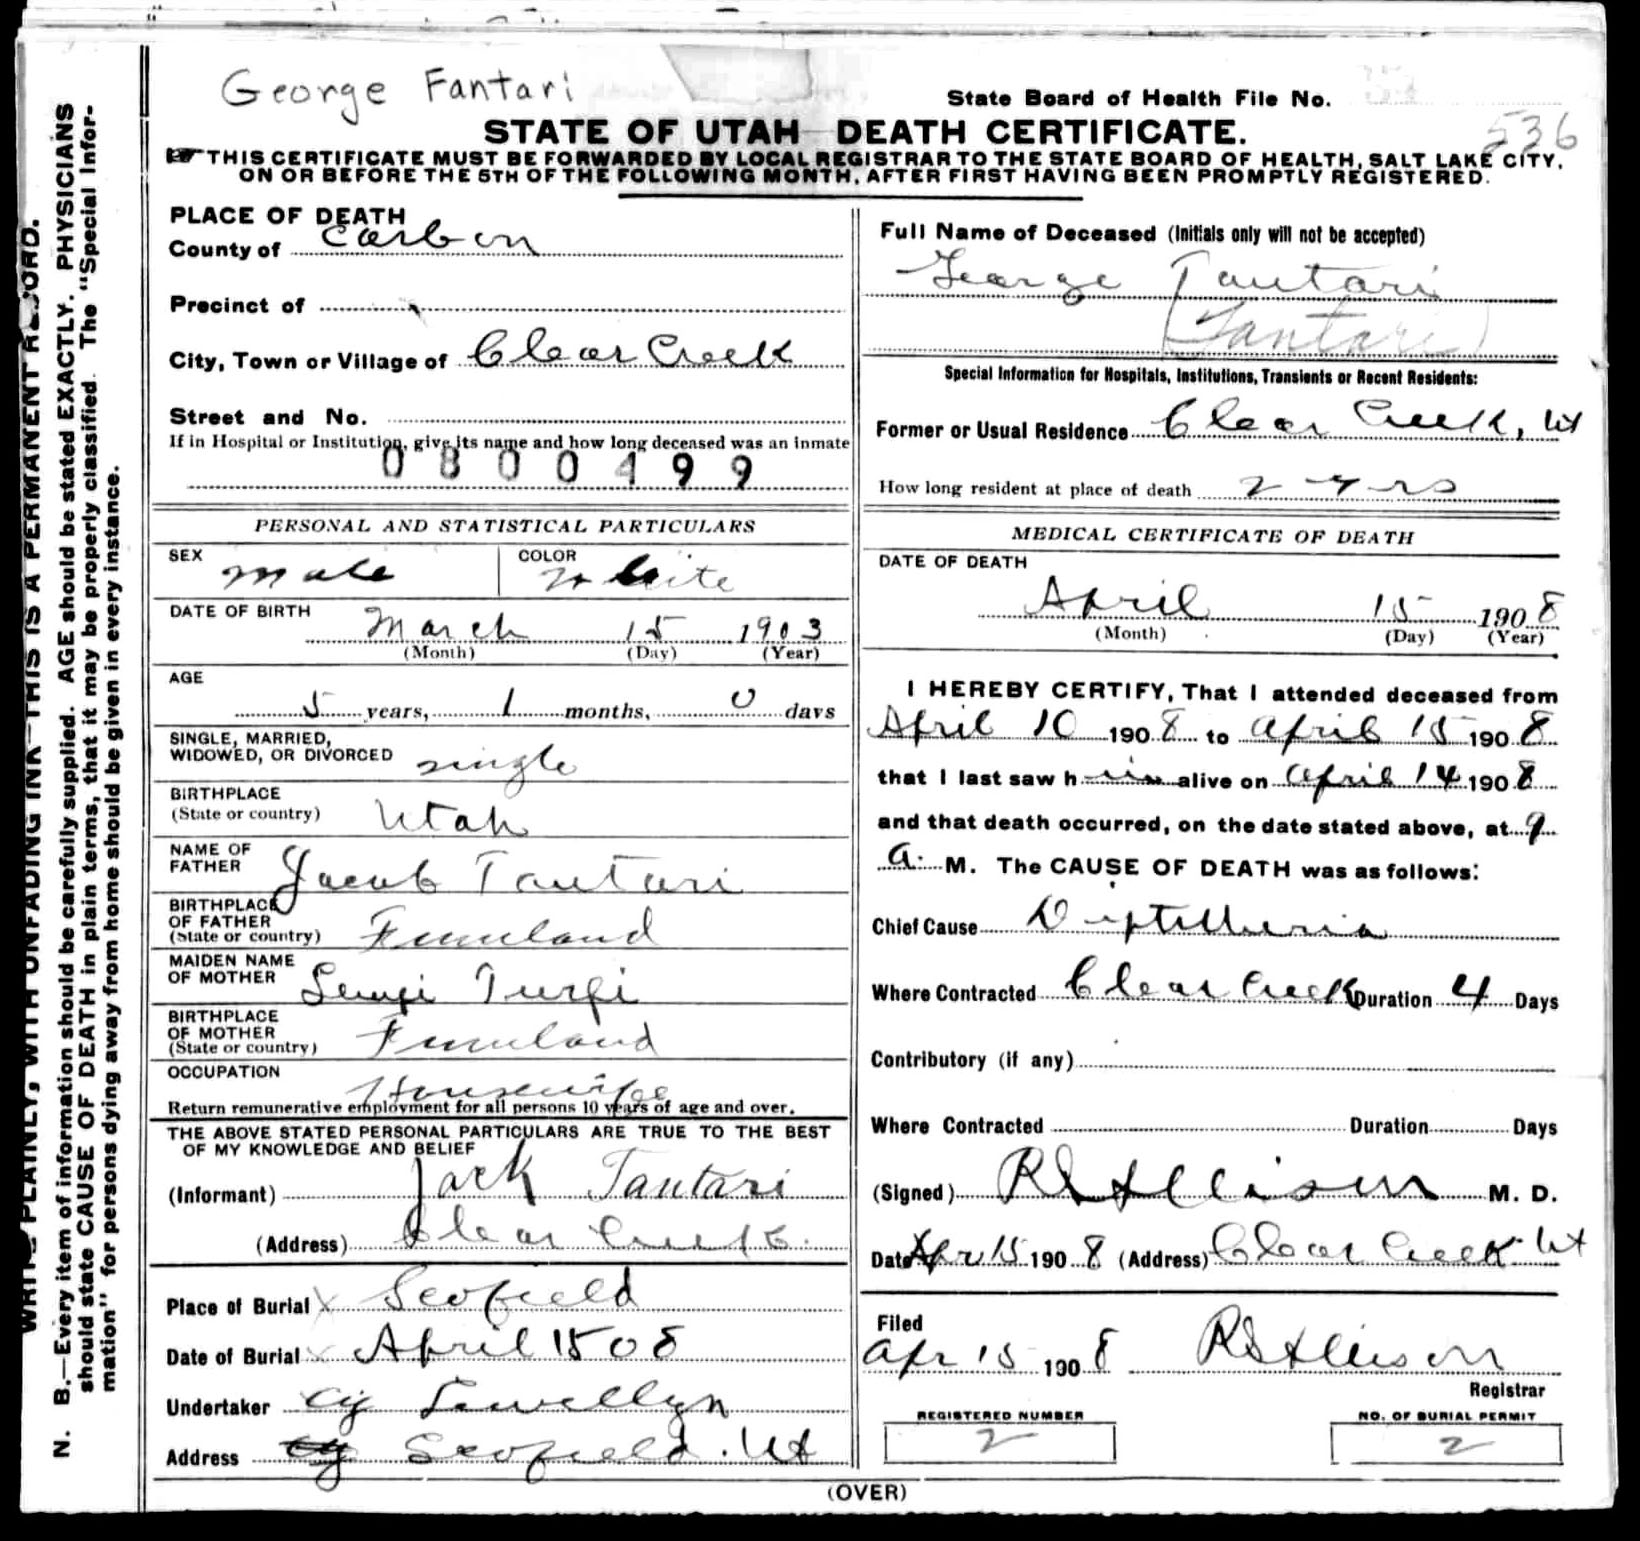 George Fantari
State Board of Health File No.
536
STATE OF UTAH DEATH CERTIFICATE.
THIS CERTIFICATE MUST BE FORWARDED BY LOCAL REGISTRAR TO THE STATE BOARD OF HEALTH, SALT LAKE CITY,
ON OR BEFORE THE 5TH OF THE FOLLOWING MONTH, AFTER FIRST HAVING BEEN PROMPTLY REGISTERED.
WRITE PLAINLY, WITH UNFADING INK—THIS IS A PERMANENT RECORD.
N. B.—Every item of information should be carefully supplied. AGE should be stated EXACTLY. PHYSICIANS
should state CAUSE OF DEATH in plain terms, that it may be properly classified. The "Special Infor-
mation" for persons dying away from home should be given in every instance.
PLACE OF DEATH
County of Carbon
Precinct of
City, Town or Village of Clear Creek
Street and No.
If in Hospital or Institution, give its name and how long deceased was an inmate
0800499
PERSONAL AND STATISTICAL PARTICULARS
SEX Male COLOR White
DATE OF BIRTH March 15 1903
(Month) (Day) (Year)
AGE
5 years, 1 months, 0 days
SINGLE, MARRIED,
WIDOWED, OR DIVORCED single
BIRTHPLACE
(State or country) Utah
NAME OF
FATHER Jacob Tantari
BIRTHPLACE
OF FATHER
(State or country) Finnland
MAIDEN NAME
OF MOTHER
BIRTHPLACE
OF MOTHER
(State or country) Finnland
OCCUPATION Housewife
Return remunerative employment for all persons 10 years of age and over.
THE ABOVE STATED PERSONAL PARTICULARS ARE TRUE TO THE BEST
OF MY KNOWLEDGE AND BELIEF
(Informant) Jack Tantari
(Address) Clear Creek
Place of Burial X Scofield
Date of Burial X April 15 08
Undertaker Lewellyn
Address Scofield. Ut
Full Name of Deceased (Initials only will not be accepted)
George Tantari
(Fantari)
Special Information for Hospitals, Institutions, Transients or Recent Residents:
Former or Usual Residence Clear Creek, Ut
How long resident at place of death 2 yrs
MEDICAL CERTIFICATE OF DEATH
DATE OF DEATH
April 15 1908
(Month) (Day) (Year)
I HEREBY CERTIFY, That I attended deceased from
April 10 1908 to April 15 1908
that I last saw him alive on April 14 1908
and that death occurred, on the date stated above, at 9
a. M. The CAUSE OF DEATH was as follows:
Chief Cause Diptheria
Where Contracted Clear Creek Duration 4 Days
Contributory (if any)
Where Contracted Duration Days
(Signed) M. D.
Date Apr 15 1908 (Address) Clear Creek Ut
Filed
Apr 15 1908
Registrar
REGISTERED NUMBER
2
NO. OF BURIAL PERMIT
2
(OVER)